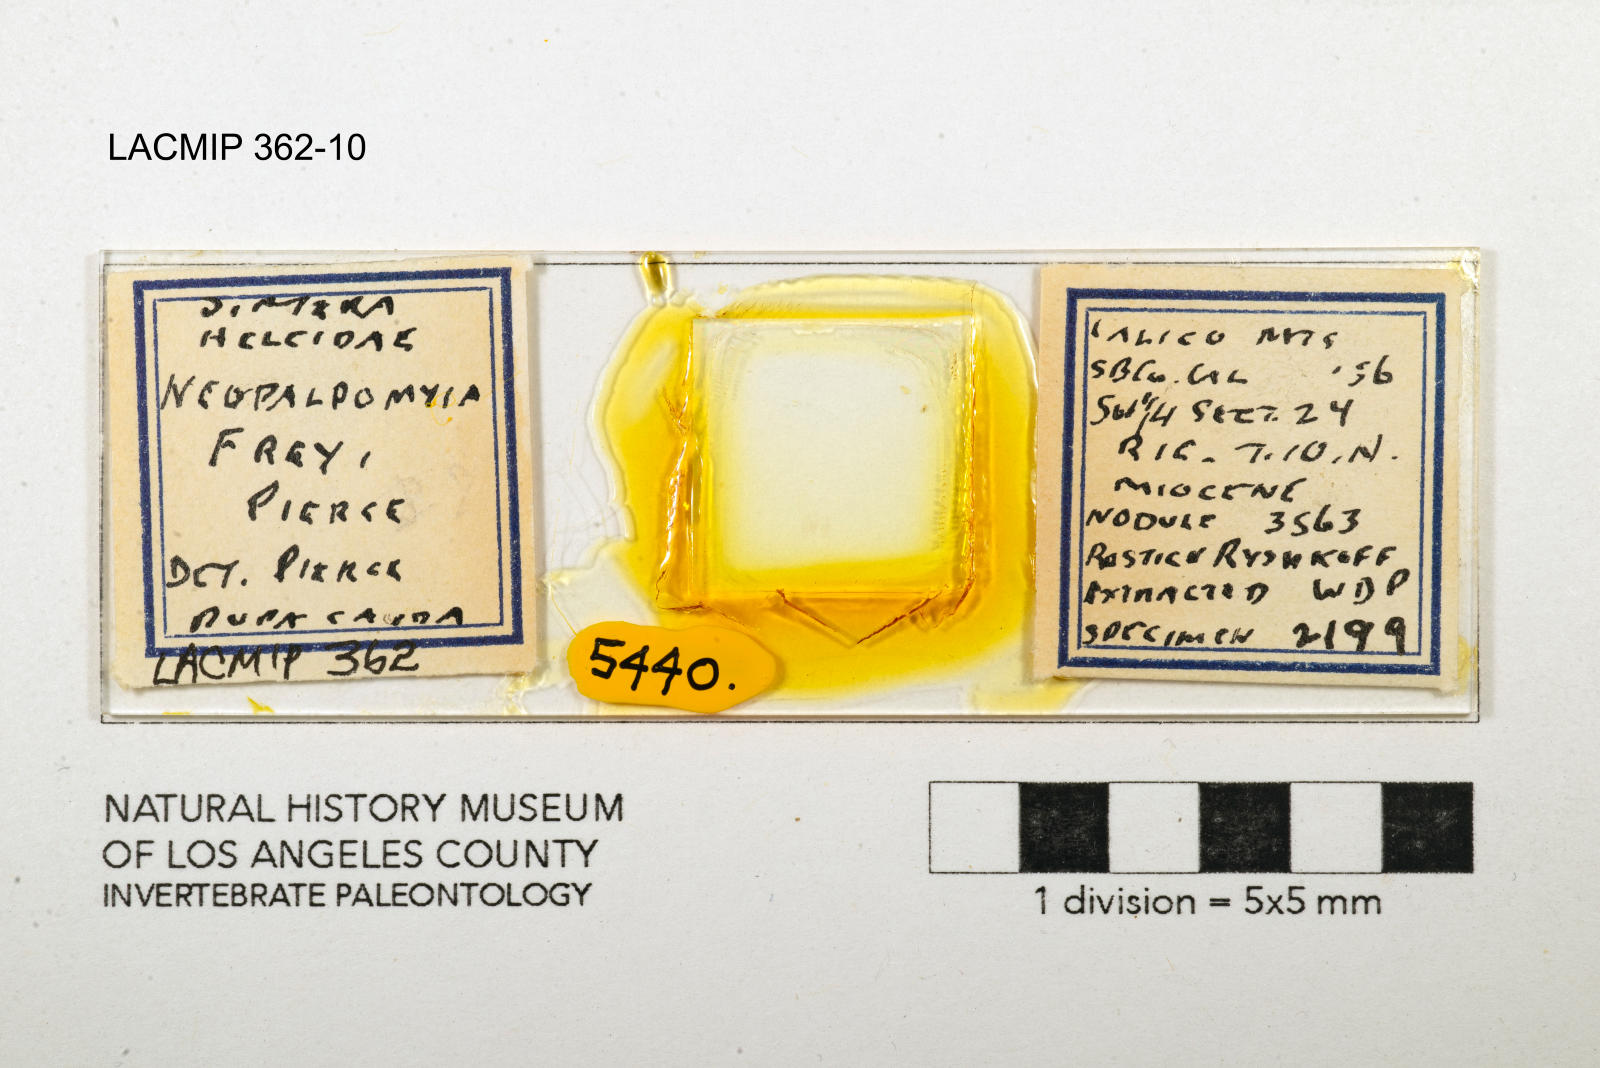 LACMIP 362-10
DIPTERA
HELEIDAE
NEOPALPOMYIA
FREYI
PIERCE
DET. PIERCE
PUPA CAUDA
LACMIP 362
5440.
CALICO MTS
SBCo. CAL '56
SW 1/4 SECT. 24
R1E. T.10.N.
MIOCENE
NODULE 3563
ROSTICK RYSHKOFF
EXTRACTED WDP
SPECIMEN 2199
NATURAL HISTORY MUSEUM
OF LOS ANGELES COUNTY
INVERTEBRATE PALEONTOLOGY
1 division = 5x5 mm